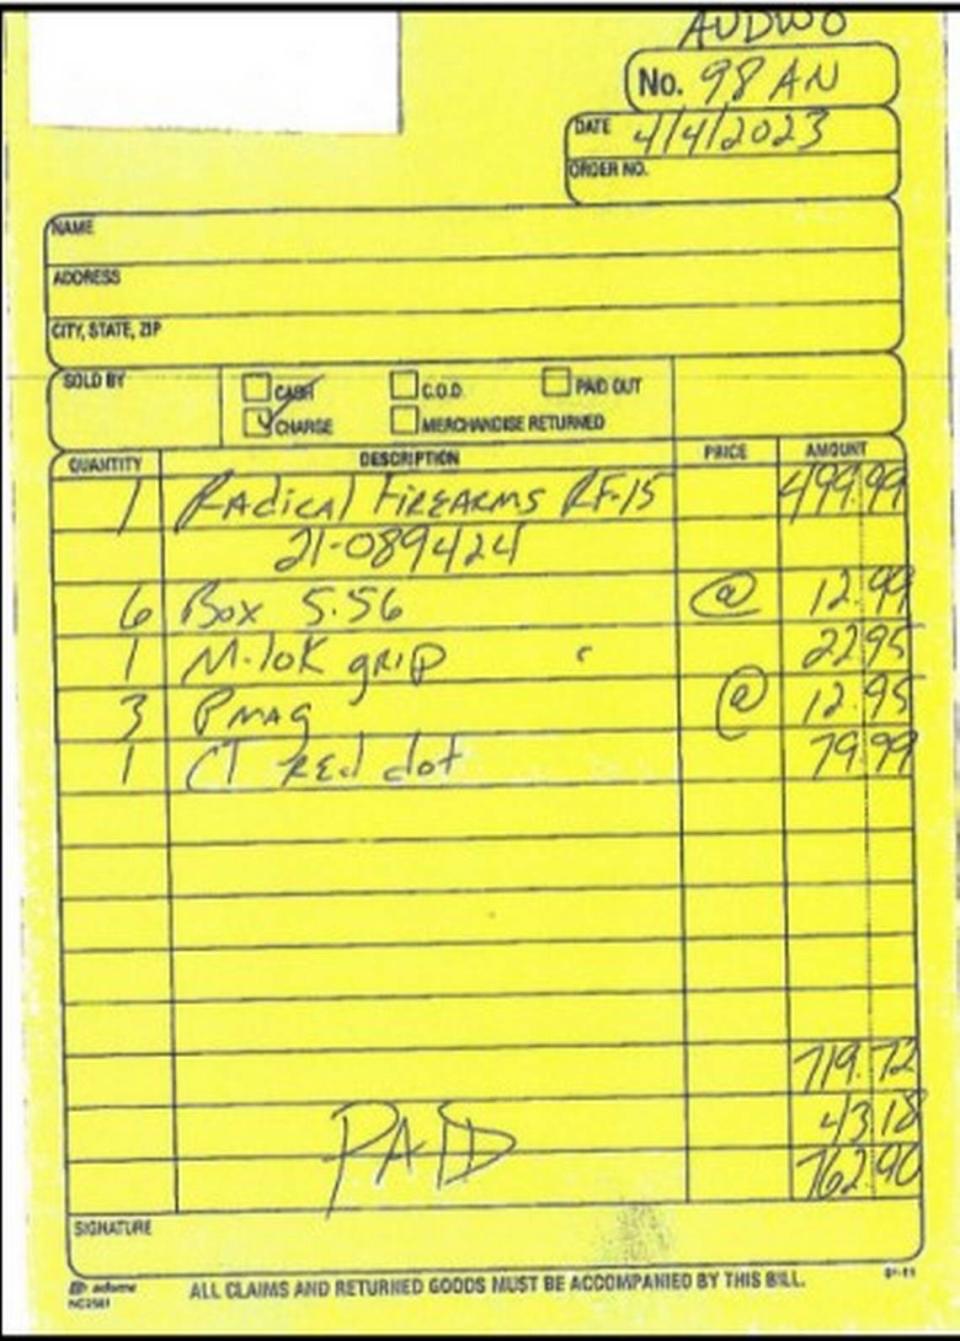 AUDWO
No. 98 AN
DATE 4/4/2023
ORDER NO.
NAME
ADDRESS
CITY, STATE, ZIP
SOLD BY
CASH C.O.D. PAID OUT
CHARGE MERCHANDISE RETURNED
QUANTITY DESCRIPTION PRICE AMOUNT
1 Radical Firearms RF-15 499.99
21-089424
6 Box 5.56 @ 12.99
1 M-lok grip 22.95
3 Pmag @ 12.95
1 CT Red dot 79.99
719.72
43.18
PAID
762.90
SIGNATURE
adams
NC2581
ALL CLAIMS AND RETURNED GOODS MUST BE ACCOMPANIED BY THIS BILL.